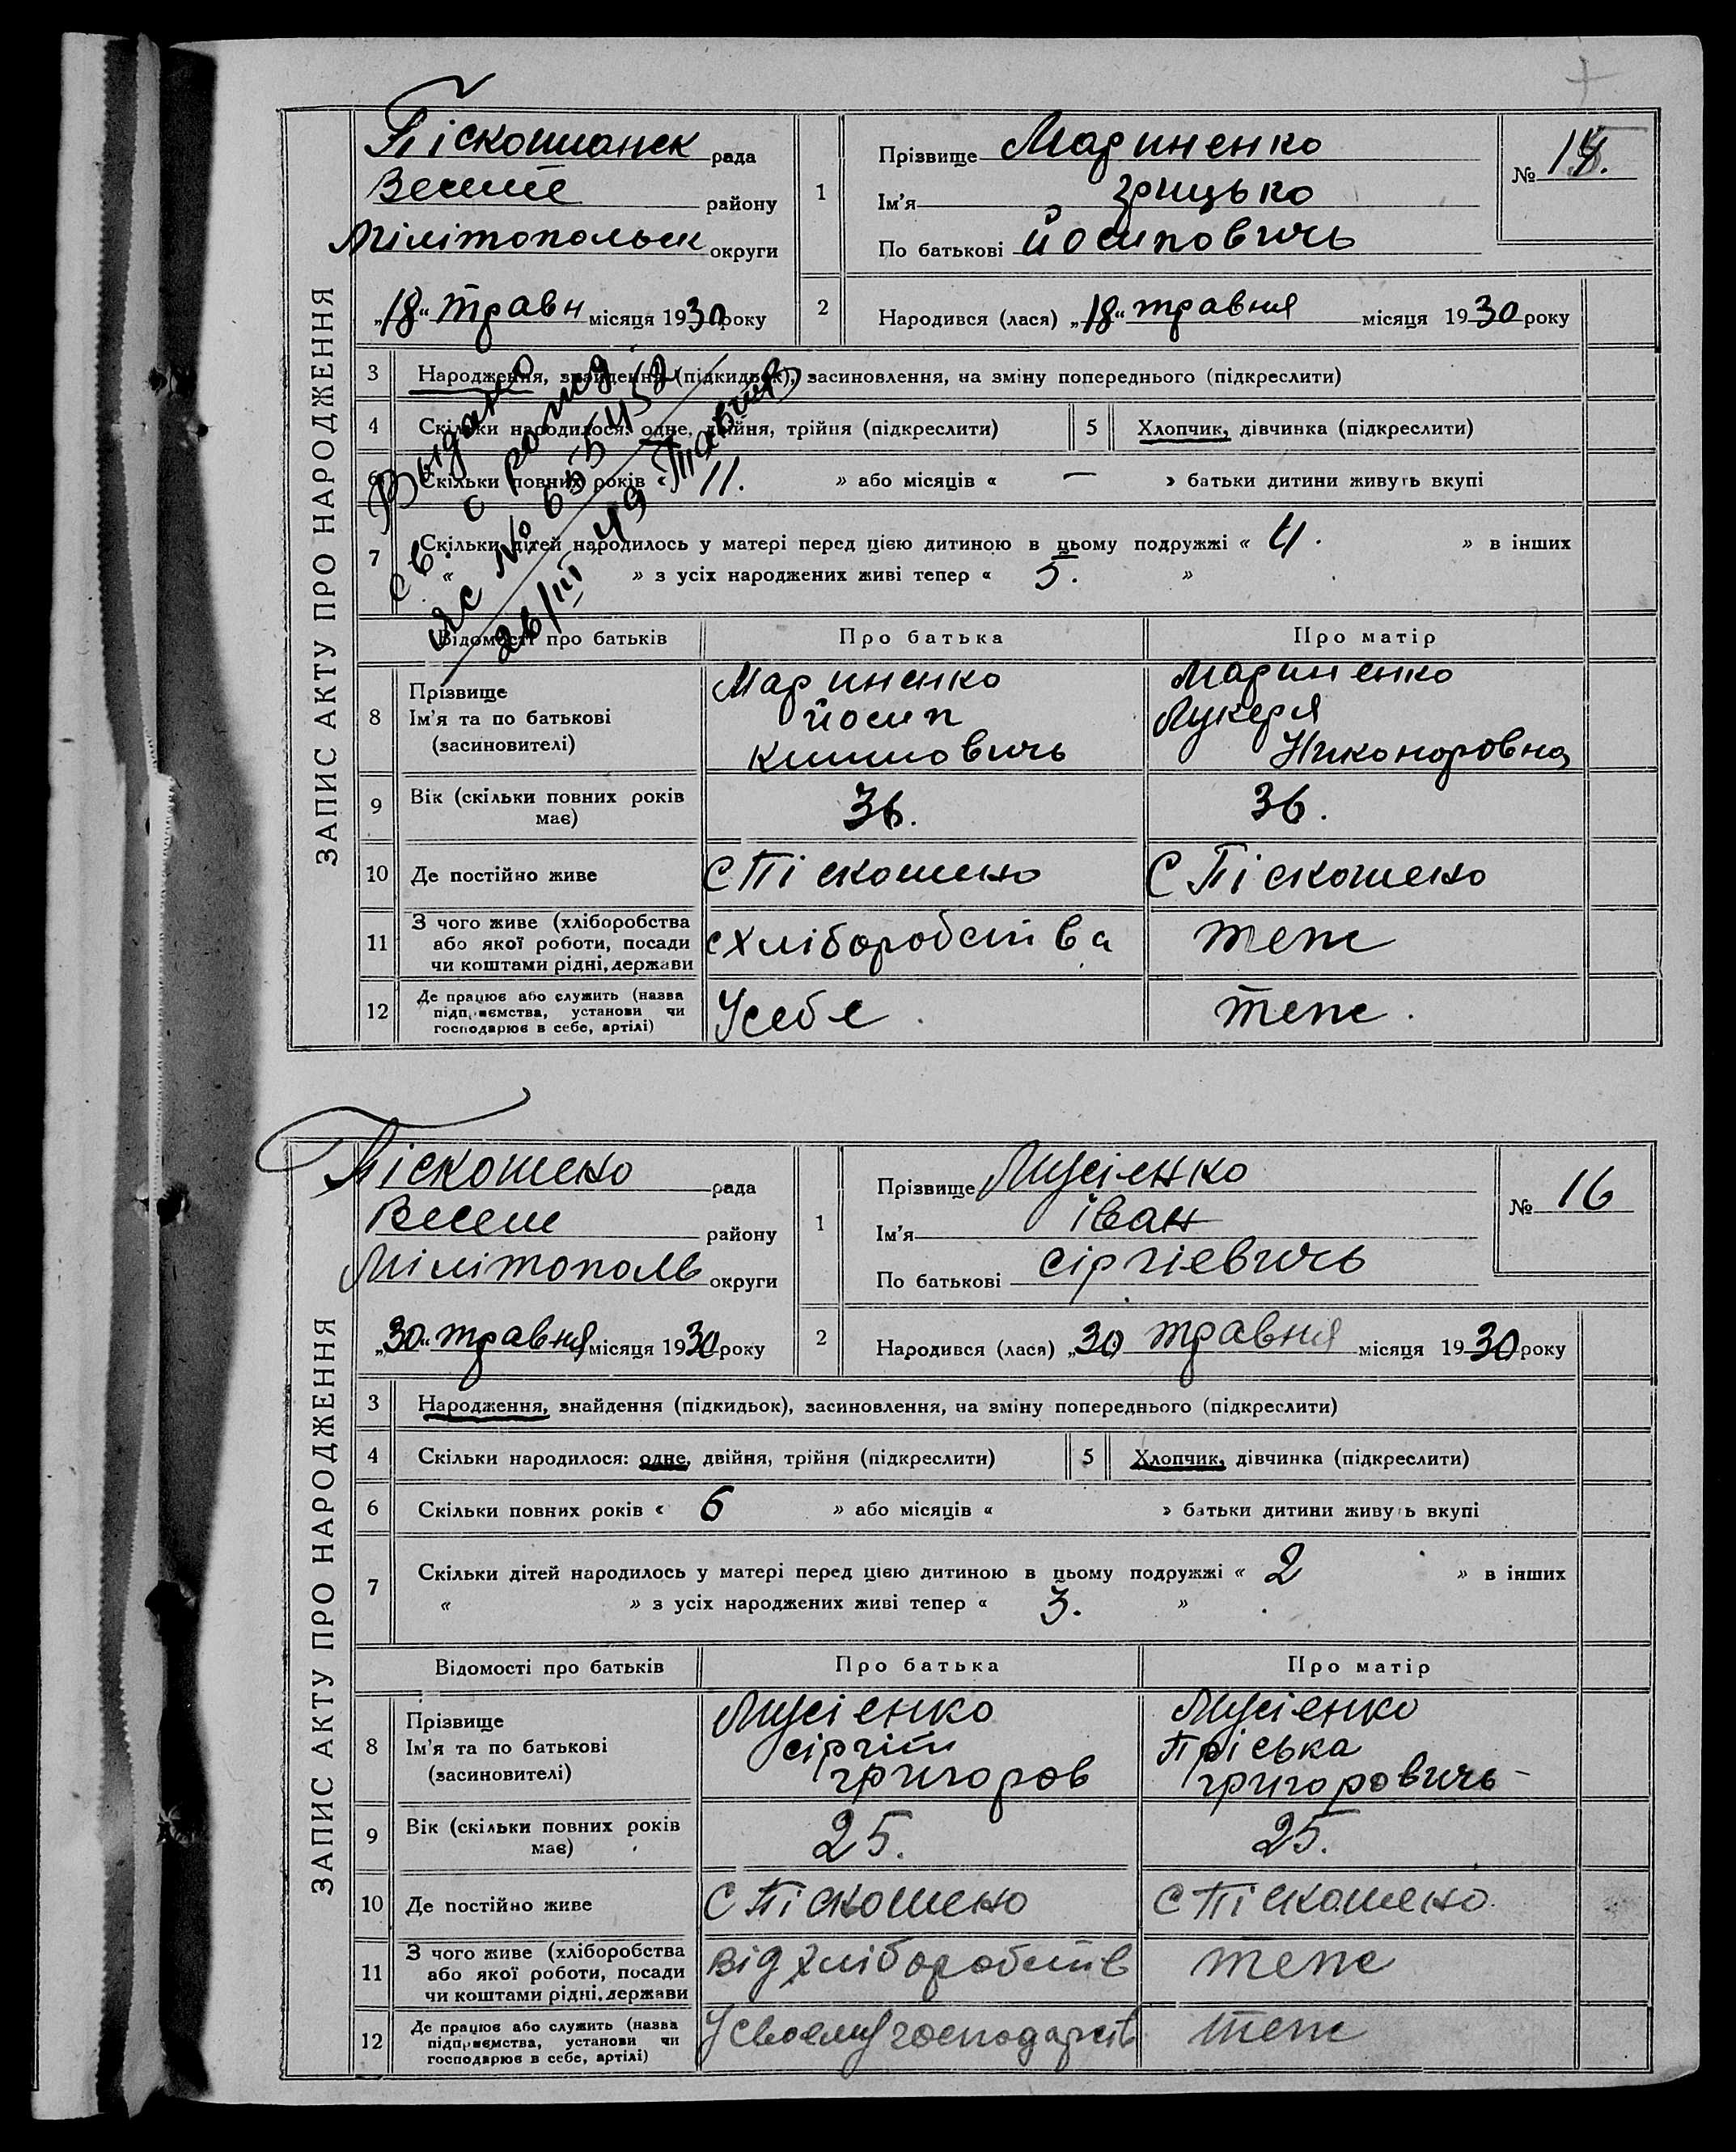 ЗАПИС АКТУ ПРО НАРОДЖЕННЯ
Піскошианск рада
Веселе району
Мілітопольск округи
„18“ травн місяця 1930 року
1 Прізвище Мариненко
Ім'я Грицько
По батькові Йосиповичь
№ 15.
2 Народився (лася) „18“ травня місяця 1930 року
3 Народження, знайдення (підкидьок), засиновлення, на зміну попереднього (підкреслити)
4 Скільки народилося: одне, двійня, трійня (підкреслити)
5 Хлопчик, дівчинка (підкреслити)
6 Скільки повних років « 11. » або місяців « — » батьки дитини живуть вкупі
7 Скільки дітей народилось у матері перед цією дитиною в цьому подружжі « 4. » в інших
« » з усіх народжених живі тепер « 5. »
Выдано
св. о рожд
№
26/III 49
Відомості про батьків Про батька Про матір
8 Прізвище Мариненко Мариненко
Ім'я та по батькові Йосип Лукеря
(засиновителі) Климовичь Никоноровна
9 Вік (скільки повних років має) 36. 36.
10 Де постійно живе С Піскошено С Піскошено
11 З чого живе (хліборобства
або якої роботи, посади
чи коштами рідні, держави
с хліборобства теж
12 Де працює або служить (назва
підприємства, установи чи
господарює в себе, артілі)
У себе. теж.
ЗАПИС АКТУ ПРО НАРОДЖЕННЯ
Піскошено рада
Веселе району
Мілітополь округи
„30“ травня місяця 1930 року
1 Прізвище Мусіенко
Ім'я іван
По батькові сіргіевичь
№ 16
2 Народився (лася) „30 травня місяця 1930 року
3 Народження, знайдення (підкидьок), засиновлення, на зміну попереднього (підкреслити)
4 Скільки народилося: одне, двійня, трійня (підкреслити)
5 Хлопчик, дівчинка (підкреслити)
6 Скільки повних років « 6 » або місяців « » батьки дитини живуть вкупі
7 Скільки дітей народилось у матері перед цією дитиною в цьому подружжі « 2 » в інших
« » з усіх народжених живі тепер « 3. »
Відомості про батьків Про батька Про матір
8 Прізвище Мусіенко Мусіенко
Ім'я та по батькові сіргій Пріська
(засиновителі) григоров григоровичь
9 Вік (скільки повних років має) 25. 25.
10 Де постійно живе С Піскошено С Піскошено.
11 З чого живе (хліборобства
або якої роботи, посади
чи коштами рідні, держави
від хліборобств теж
12 Де працює або служить (назва
підприємства, установи чи
господарює в себе, артілі)
У своему господарств теж